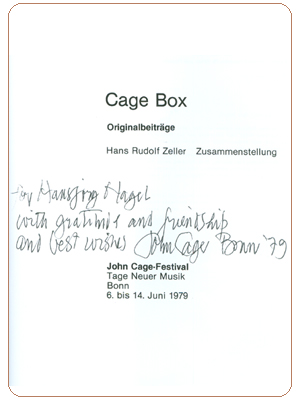 Cage Box
Originalbeiträge
Hans Rudolf Zeller Zusammenstellung
for Hansjörg Nagel
with gratitude and friendship
and best wishes John Cage Bonn '79
John Cage-Festival
Tage Neuer Musik
Bonn
6. bis 14. Juni 1979